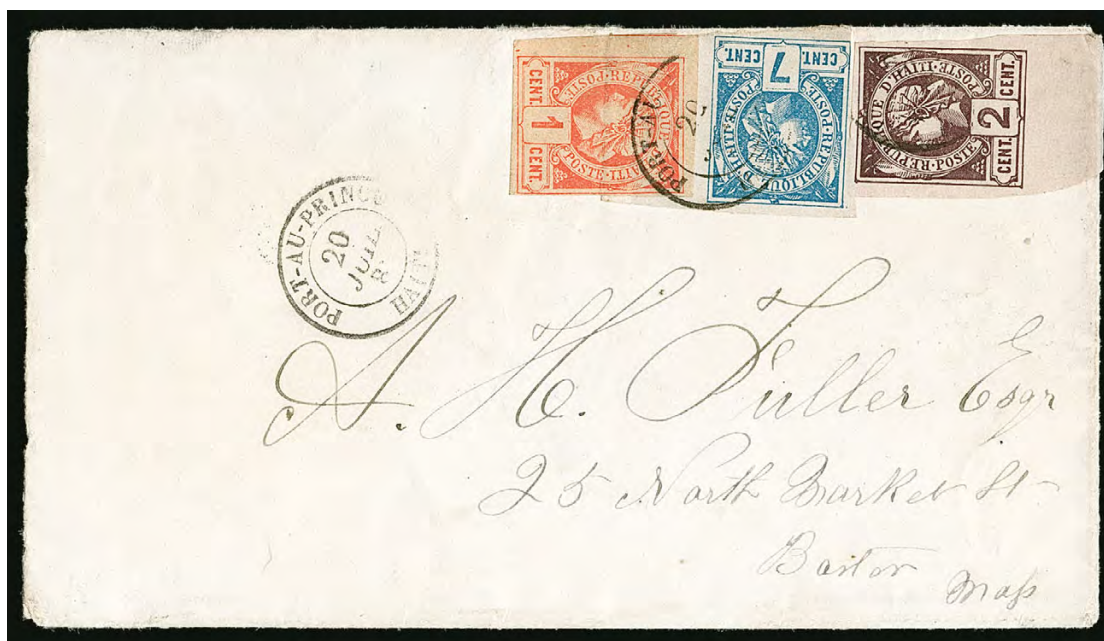 CENT. 1 CENT.
POSTE · REPUBLIQUE D'HAITI · POSTE
CENT. 7 CENT.
POSTE · REPUBLIQUE D'HAITI · POSTE
CENT. 2 CENT.
POSTE · REPUBLIQUE D'HAITI · POSTE
PORT-AU
20
J
PORT-AU-PRINCE
20
JUIL
8
HAITI
A. H. Fuller Esqr
25 North Market St
Boston
Mass